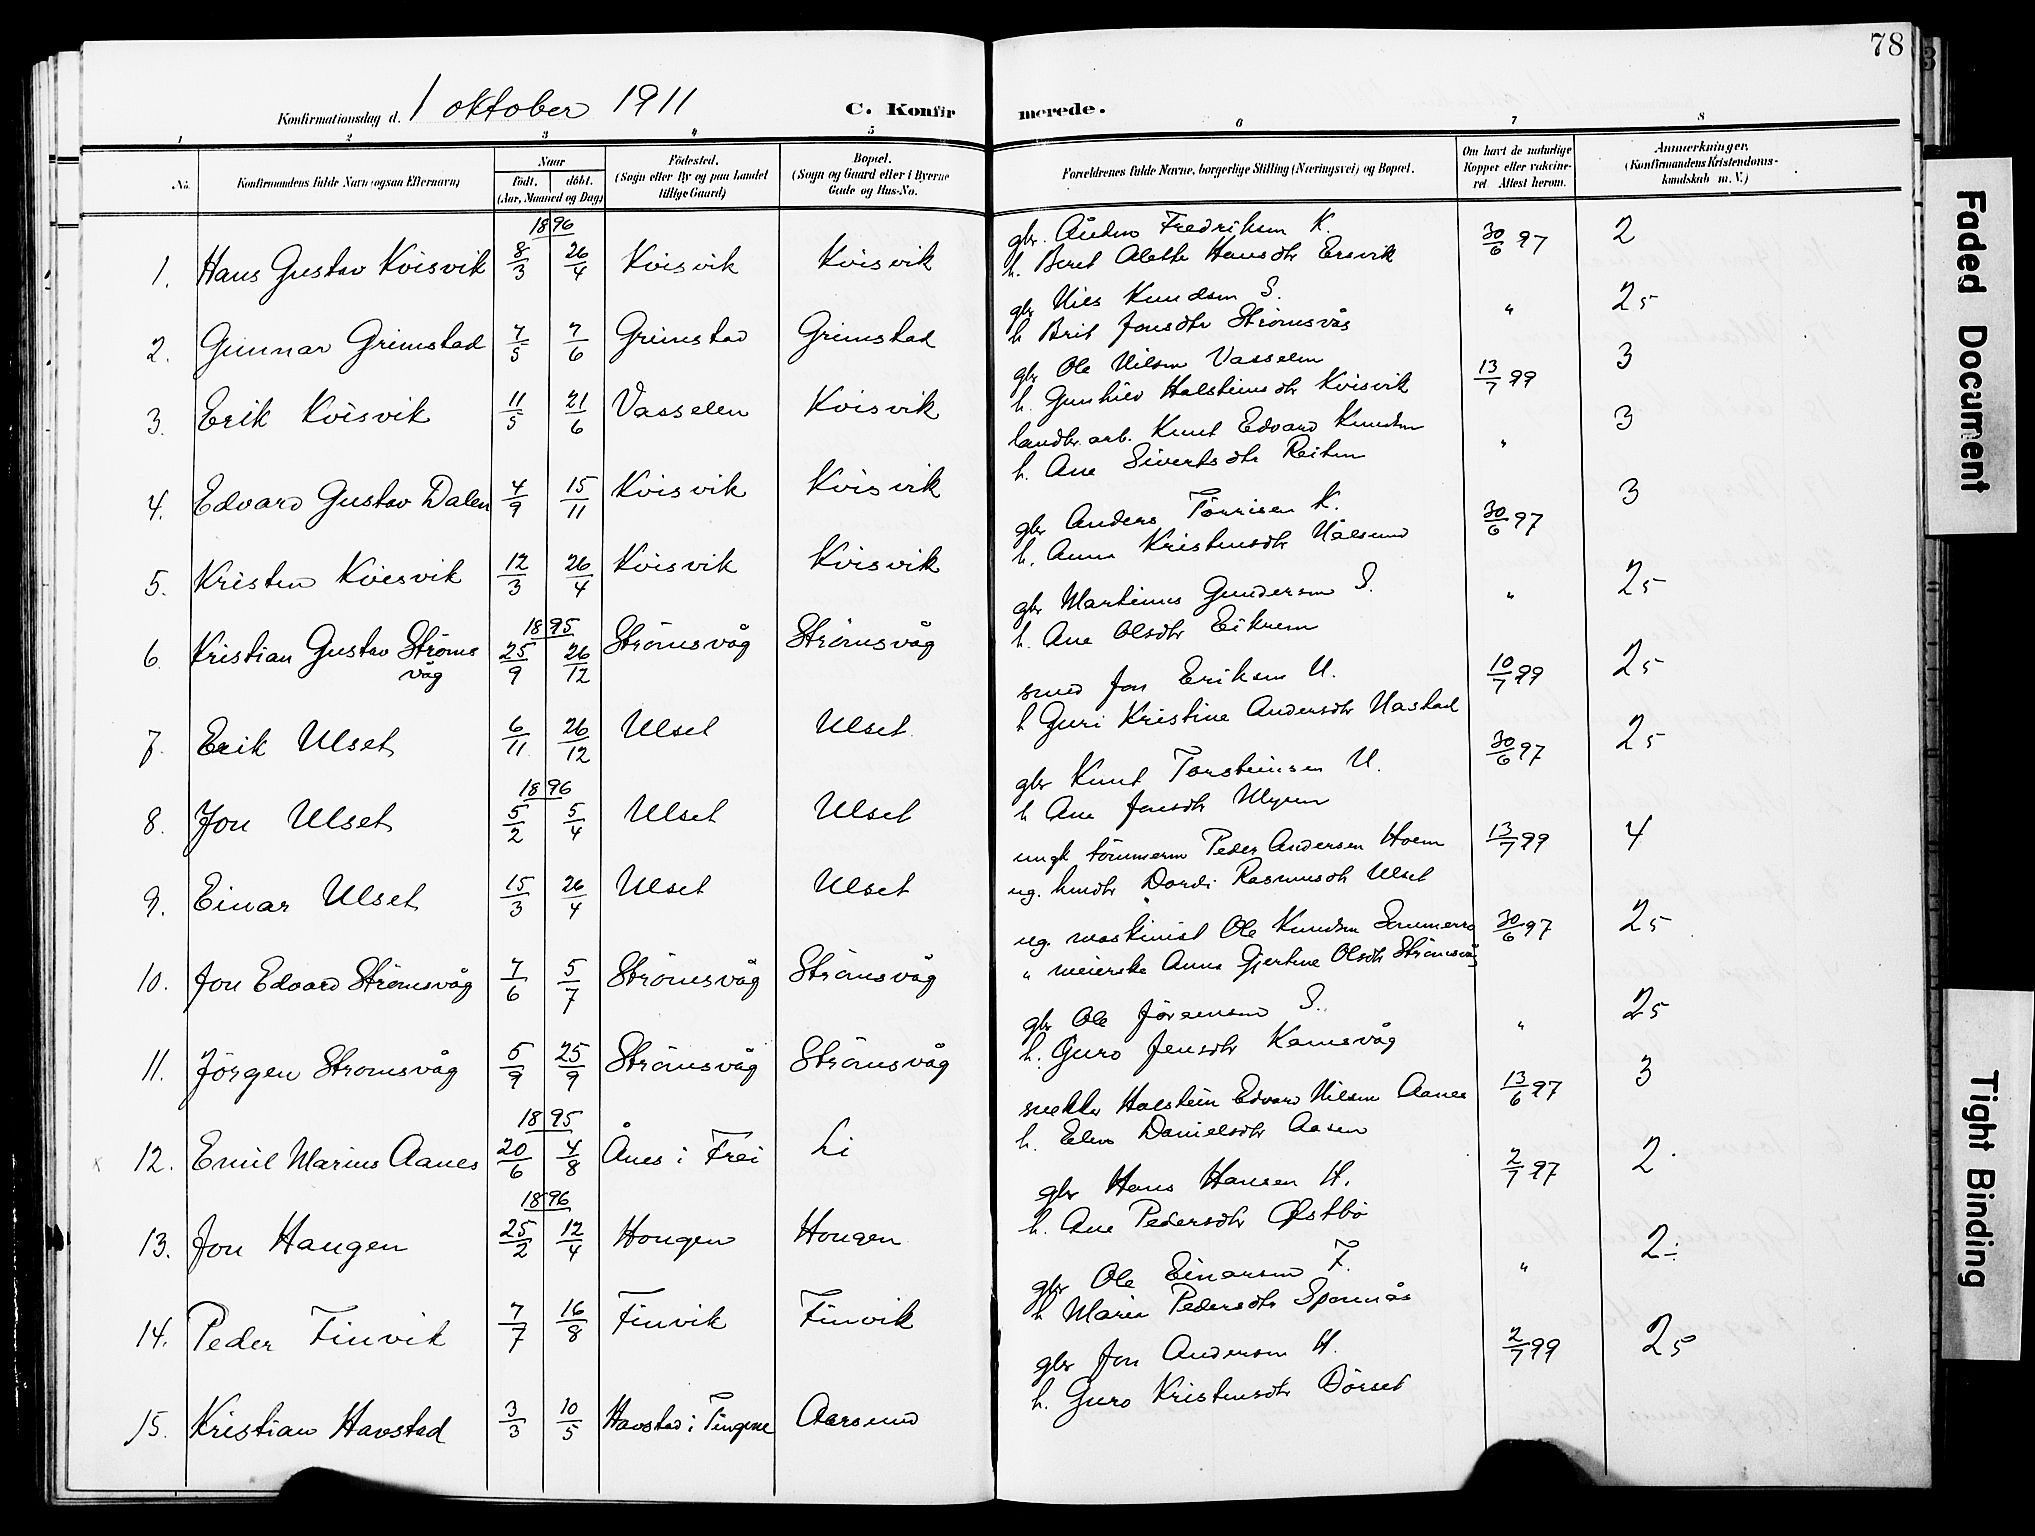 78
Konfirmationsdag d. 1 oktober 1911 C. Konfirmerede.
1 2 3 4 5 6 7 8
No. Konfirmandens fulde Navn (ogsaa Efternavn) Naar født. døbt. (Aar, Maaned og Dag) Födested. (Sogn eller By og paa Landet tillige Gaard) Bopæl. (Sogn og Gaard eller i Byerne Gade og Hus-No. Forældrenes fulde Navne, borgerlige Stilling (Næringsvei) og Bopæl. Om havt de naturlige Kopper eller vakcineret Attest herom. Anmærkninger. (Konfirmandens Kristendomskundskab m. V.)
1896
1. Hans Gustav Kvisvik 8/3 26/4 Kvisvik Kvisvik gbr. Anders Fredriksen K. 30/6 97 2
h. Beret Alette Hansdtr Ersvik
2. Gunnar Grimstad 7/5 7/6 Grimstad Grimstad gbr Nils Knudsen S. " 25
h Brit Jonsdtr Strömsvåg
3. Erik Kvisvik 11/5 21/6 Vasselen Kvisvik gbr Ole Nilsen Vasselen 13/7 99 3
h. Gunhild Halsteinsdtr Kvisvik
4. Edvard Gustav Dalen 4/9 15/11 Kvisvik Kvisvik landbr. arb. Knut Edvard Knudsen " 3
h. Ane Sivertsdtr Reiten
5. Kristen Kvisvik 12/3 26/4 Kvisvik Kvisvik gbr Anders Törrisen K. 30/6 97 3
h. Anne Kristensdtr Nålsund
1895
6. Kristian Gustav Ströms
våg 25/9 26/12 Strömsvåg Strömsvåg gbr Martinus Gundersen S. " 25
h. Ane Olsdtr Eikrem
7. Erik Ulset 6/11 26/12 Ulset Ulset smed Jon Eriksen U. 10/7 99 25
h Guri Kristine Andersdtr Nastad
1896
8. Jon Ulset 5/2 5/4 Ulset Ulset gbr Knut Torsteinsen U. 30/6 97 25
h Ane Jonsdtr Myren
9. Einar Ulset 15/3 26/4 Ulset Ulset ungk tömmerm Peder Andersen Hoem 13/7 99 4
ug. Dordi Rasmusdtr Ulset
10. Jon Edvard Strömsvåg 7/6 5/7 Strömsvåg Strömsvåg ug. maskinist Ole Knudsen 30/6 97 25
" meierske Anne Gjertine Olsdtr Strömsvåg
11. Jörgen Strömsvåg 5/9 25/9 Strömsvåg Strömsvåg gbr Ole Jörgensen S. " 25
h. Guro Jensdtr Kamsvåg
1895
12. Emil Marius Aanes 20/6 4/8 Ånes i Frei Li snekker Halstein Edvard Nilsen Aanes 13/6 97 3
h. Elen Danielsdtr Aasen
1896
13. Jon Haugen 25/2 12/4 Hougen Hougen gbr Hans Hansen H. 2/7 97 2
h. Ane Pedersdtr Østbö
14. Peder Finvik 7/7 16/8 Finvik Finvik gbr Ole Einarsen F. " 2
h Marie Pedersdtr
15. Kristian Havstad 3/3 10/5 Havstad i Tingvoll Aarsund gbr Jon Andersen H. 2/7 99 25
h. Guro Kristensdtr Börset
Faded Document
Tight Binding